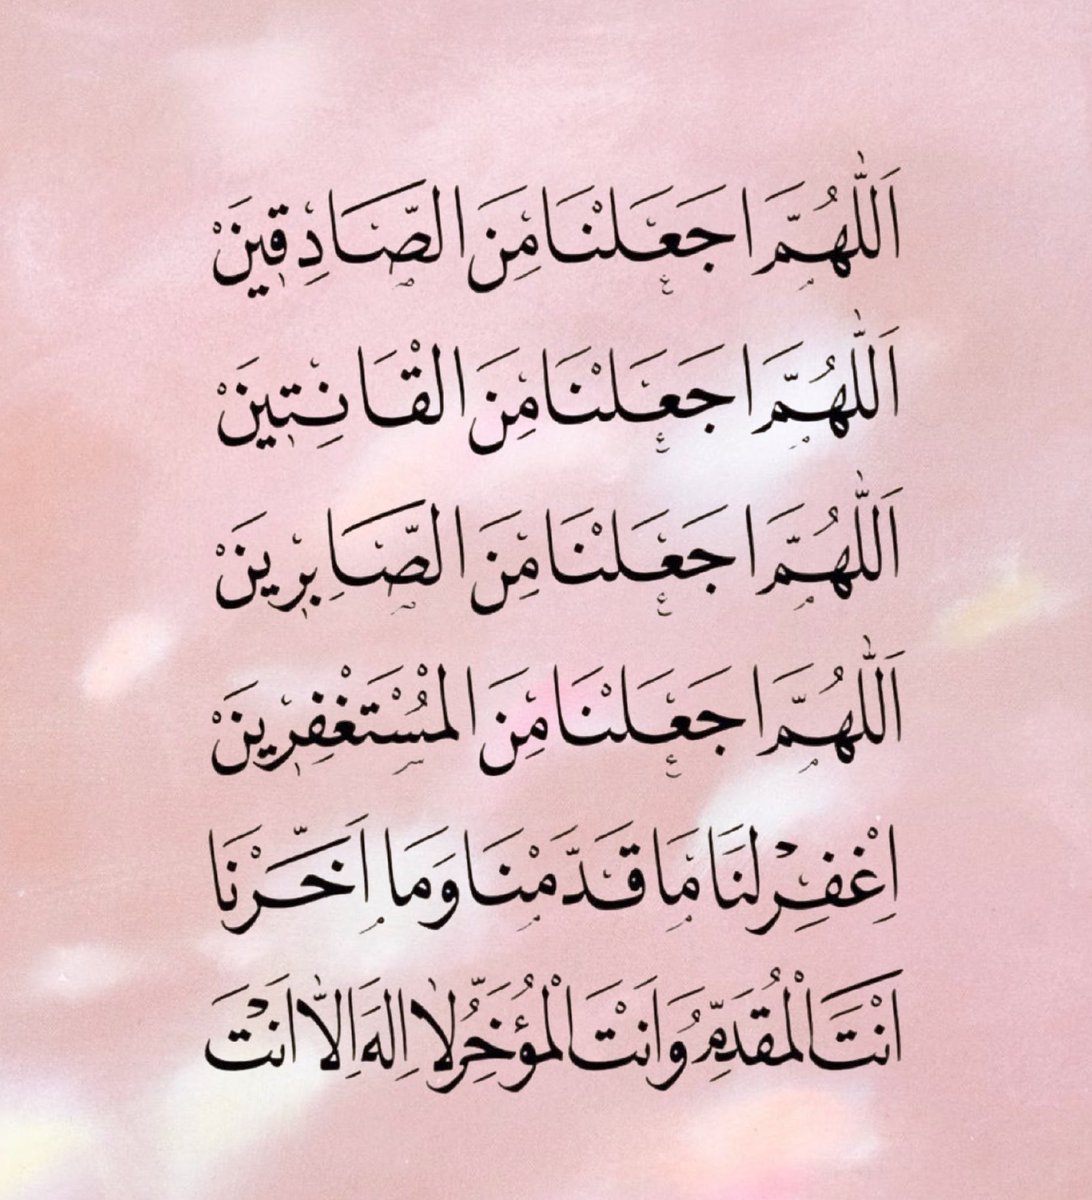 اَللّٰهُمَّ اجَعَلْنَا مِنَ الصَّادِقِينَ
اَللّٰهُمَّ اجَعَلْنَا مِنَ الْقَانِتِينَ
اَللّٰهُمَّ اجَعَلْنَا مِنَ الصَّابِرِينَ
اَللّٰهُمَّ اجَعَلْنَا مِنَ الْمُسْتَغْفِرِينَ
اِغْفِرْ لَنَا مَا قَدَّمْنَا وَمَا اَخَّرْنَا
اَنْتَ الْمُقَدِّمُ وَاَنْتَ الْمُؤَخِّرُ لَا اِلٰهَ اِلَّا اَنْتَ